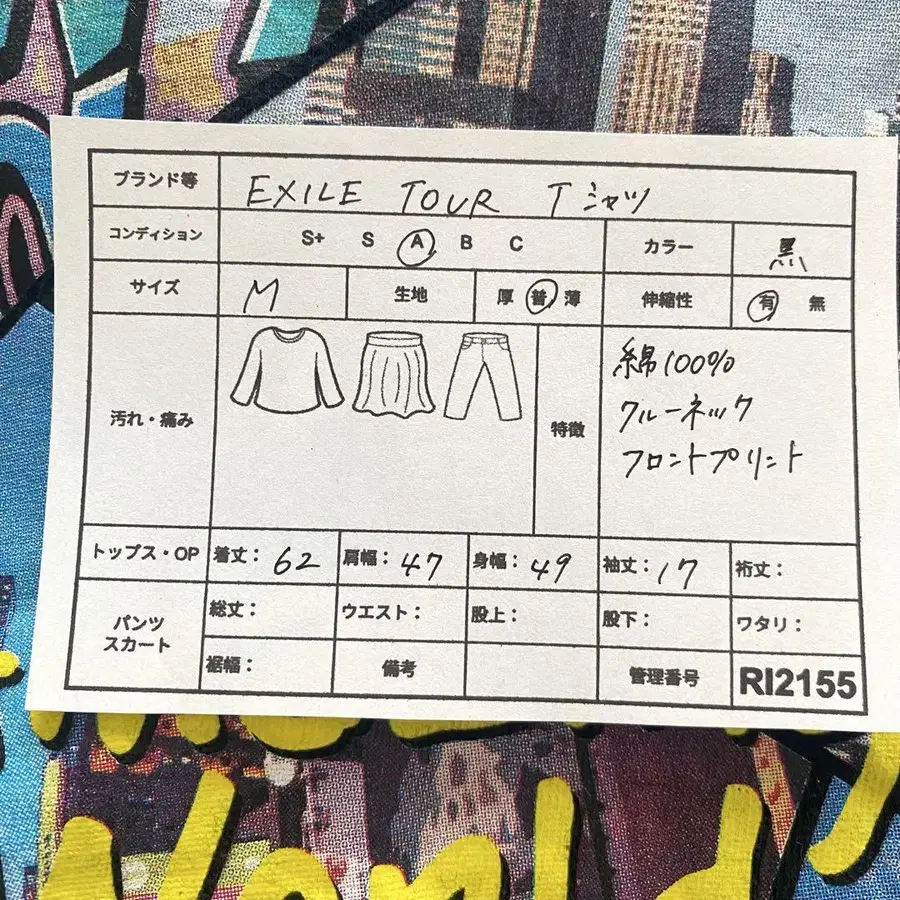 ブランド等 EXILE TOUR Tシャツ
コンディション S+ S A B C カラー 黒
サイズ M 生地 厚 普 薄 伸縮性 有 無
汚れ・痛み 特徴 綿100%
クルーネック
フロントプリント
トップス・OP 着丈: 62 肩幅: 47 身幅: 49 袖丈: 17 裄丈:
パンツ スカート 総丈: ウエスト: 股上: 股下: ワタリ:
裾幅: 備考 管理番号 RI2155
World